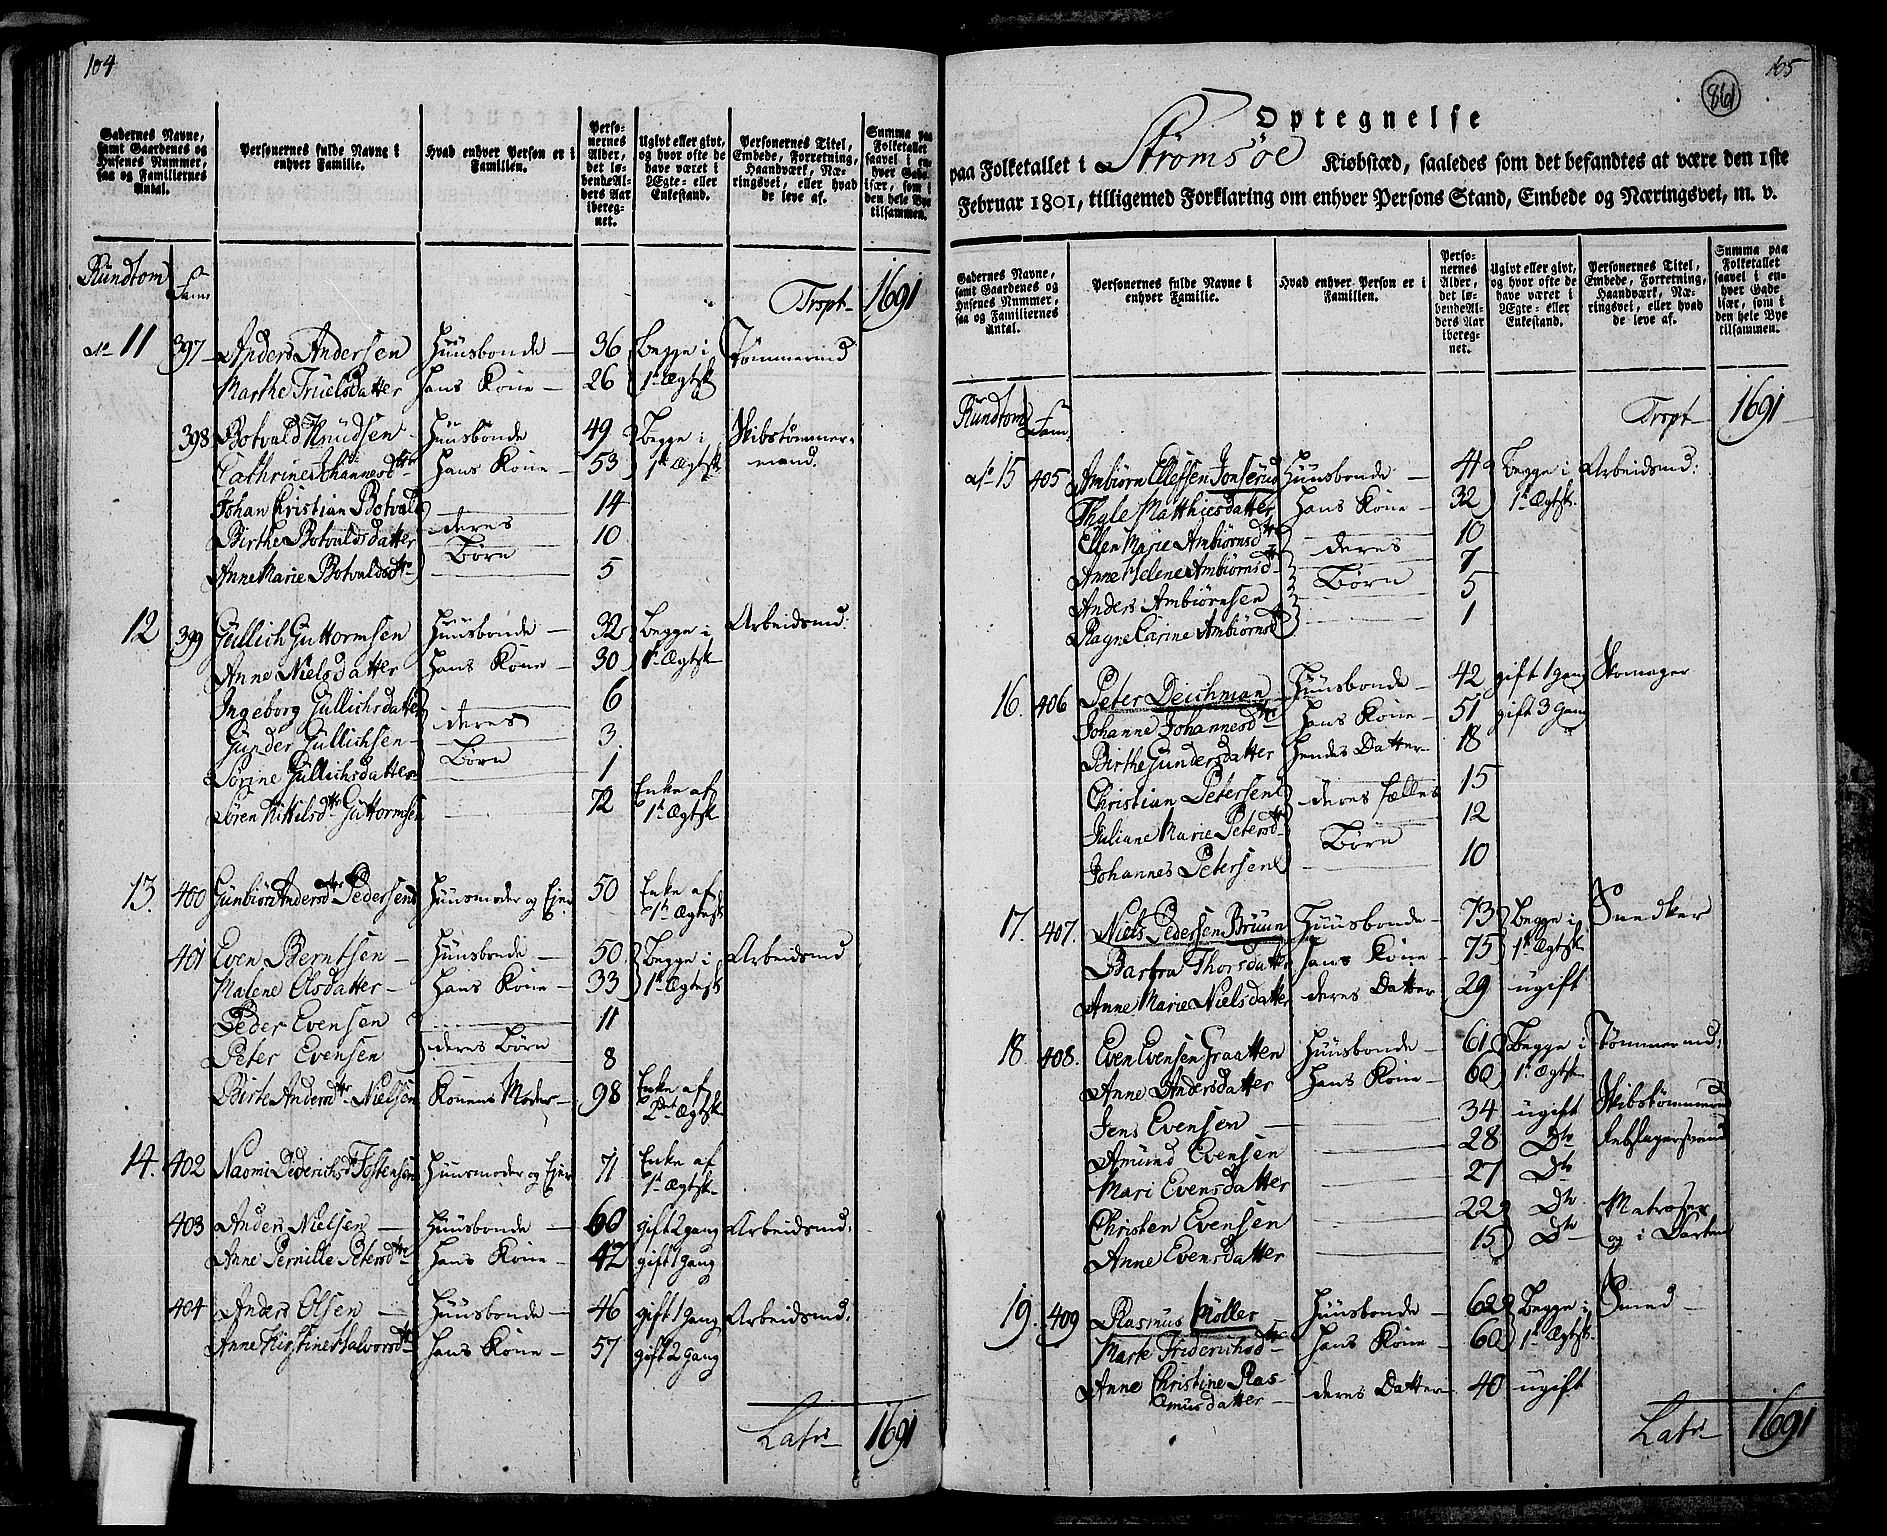 104
Gadernes Navne, samt Gaardenes og Husenes Nummer, saa og Familiernes Antal.
Personernes fulde Navne i enhver Familie.
Hvad enhver Person er i Familien.
Personernes Alder, det løbendeAlders Aar iberegnet.
Ugivt eller givt, og hvor ofte de have været i Ægte- eller Enkestand.
Personernes Titel, Embede, Forretning, Haandværk, Næringsvei, eller hvad de leve af.
Summa paa Folketallet saavel i enhver Gade især, som i den hele Bye tilsammen.
Rundtom Fam: Trspt 1691
No 11 397 Anders Andersen Huusbonde 36 Begge i Tømmermd
Marthe Truelsdatter hans Kone 26 1t Ægtsk
398 Botvald Knudsen Huusbonde 49 Begge i Skibstømmer=
Cathrine Johannesdtr hans Kone 53 1t Ægtsk mand.
Johan Cristian Botvald 14
Birthe Botvaldsdatter deres 10
Anne Marie Botvaldsdtr Børn 5
12 399 Gullich Guttormsen Huusbonde 32 Begge i Arbeidsmd:
Anne Nielsdatter hans Kone 30 1t Ægtsk
Ingeborg Gullichsdatter 6
Gunder Gullichsen deres 3
Sørine Gullichsdatter Børn 1
Søren Kittilsdtr Guttormsen 72 Enke af 1t Ægtsk
13. 400 Gunbiør Andersdtr Pedersens Huusmoder og Ejer 50 Enke af 1t Ægtsk
401 Even Berntsen Huusbonde 50 Begge i Arbeidsmd
Malene Olsdatter hans Kone 33 1t Ægtsk
Peder Evensen 11
Peter Evensen deres Børn 8
Birte Andersdtr Nielsen Konens Moder 98 Enke af 2det Ægtsk
14. 402 Naomi Dederichsdtr Tostensen Huusmoder og Ejer 71 Enke af 1t Ægtsk
403 Anders Nielsen Huusbonde 60 gift 2 gang Arbeidsmd:
Anne Pernille Petersdtr hans Kone 42 gift 1 gang
404 Anders Olsen Huusbonde 46 gift 1 gang Arbeidsmd:
Anne Kirstine Halvorsdtr hans Kone 57 gift 2 gang
Lats 1691
105
861
Optegnelse
paa Folketallet i Strømsøe Kiøbstæd, saaledes som det befandtes at være den 1ste
Februar 1801, tilligemed Forklaring om enhver Persons Stand, Embede og Næringsvei, m. v.
Gadernes Navne, samt Gaardenes og Husenes Nummer, saa og Familiernes Antal.
Personernes fulde Navne i enhver Familie.
Hvad enhver Person er i Familien.
Personernes Alder, det løbendeAlders Aar iberegnet.
Ugivt eller givt, og hvor ofte de have været i Ægte- eller Enkestand.
Personernes Titel, Embede, Forretning, Haandværk, Næringsvei, eller hvad de leve af.
Summa paa Folketallet saavel i enhver Gade især, som i den hele Bye tilsammen.
Rundtom Fam: Trspt 1691
No 15 405 Ambiørn Ellefsen Jonserud Huusbonde 41 Begge i Arbeidsmd:
Thale Matthiesdatter hans Kone 32 1t Ægtsk
Ellen Marie Ambiørnsdtr 10
Anne Helene Ambiørnsdtr deres 7
Anders Ambiørnsen Børn 5
Ragne Carine Ambiørnsdtr 1
16. 406 Peter Deichman Huusbonde 42 gift 1 gang Skomager
Johanne Johannesdtr hans Kone 51 gift 3 gang
Birthe Gundersdatter hendes Datter 18
Christian Petersen deres fælles 15
Juliane Marie Petersdtr Børn 12
Johannes Petersen 10
17. 407. Niels Pedersen Bruun Huusbonde 73 Begge i Snedker
Barbra Thorsdatter hans Kone 75 1t Ægtsk
Anne Marie Nielsdatter deres Datter 29 ugift
18. 408. Even Evensen Graatten Huusbonde 61 Begge i Tømmermd:
Anne Andersdatter hans Kone 60 1t Ægtsk
Jens Evensen 34 ugift Skibstømmermd
Amund Evensen 28 Dto Rebslagersvend
Mari Evensdatter 27 Dto
Christen Evensen 22 Dto Matroser
Anne Evensdatter 15 Dto og i
19. 409 Rasmus Møller Huusbonde 62 Begge i Smed
Marte Friderichsdtr hans Kone 60 1t Ægtsk
Anne Christine Ras= deres Datter 40 ugift
musdatter
Lats 1691